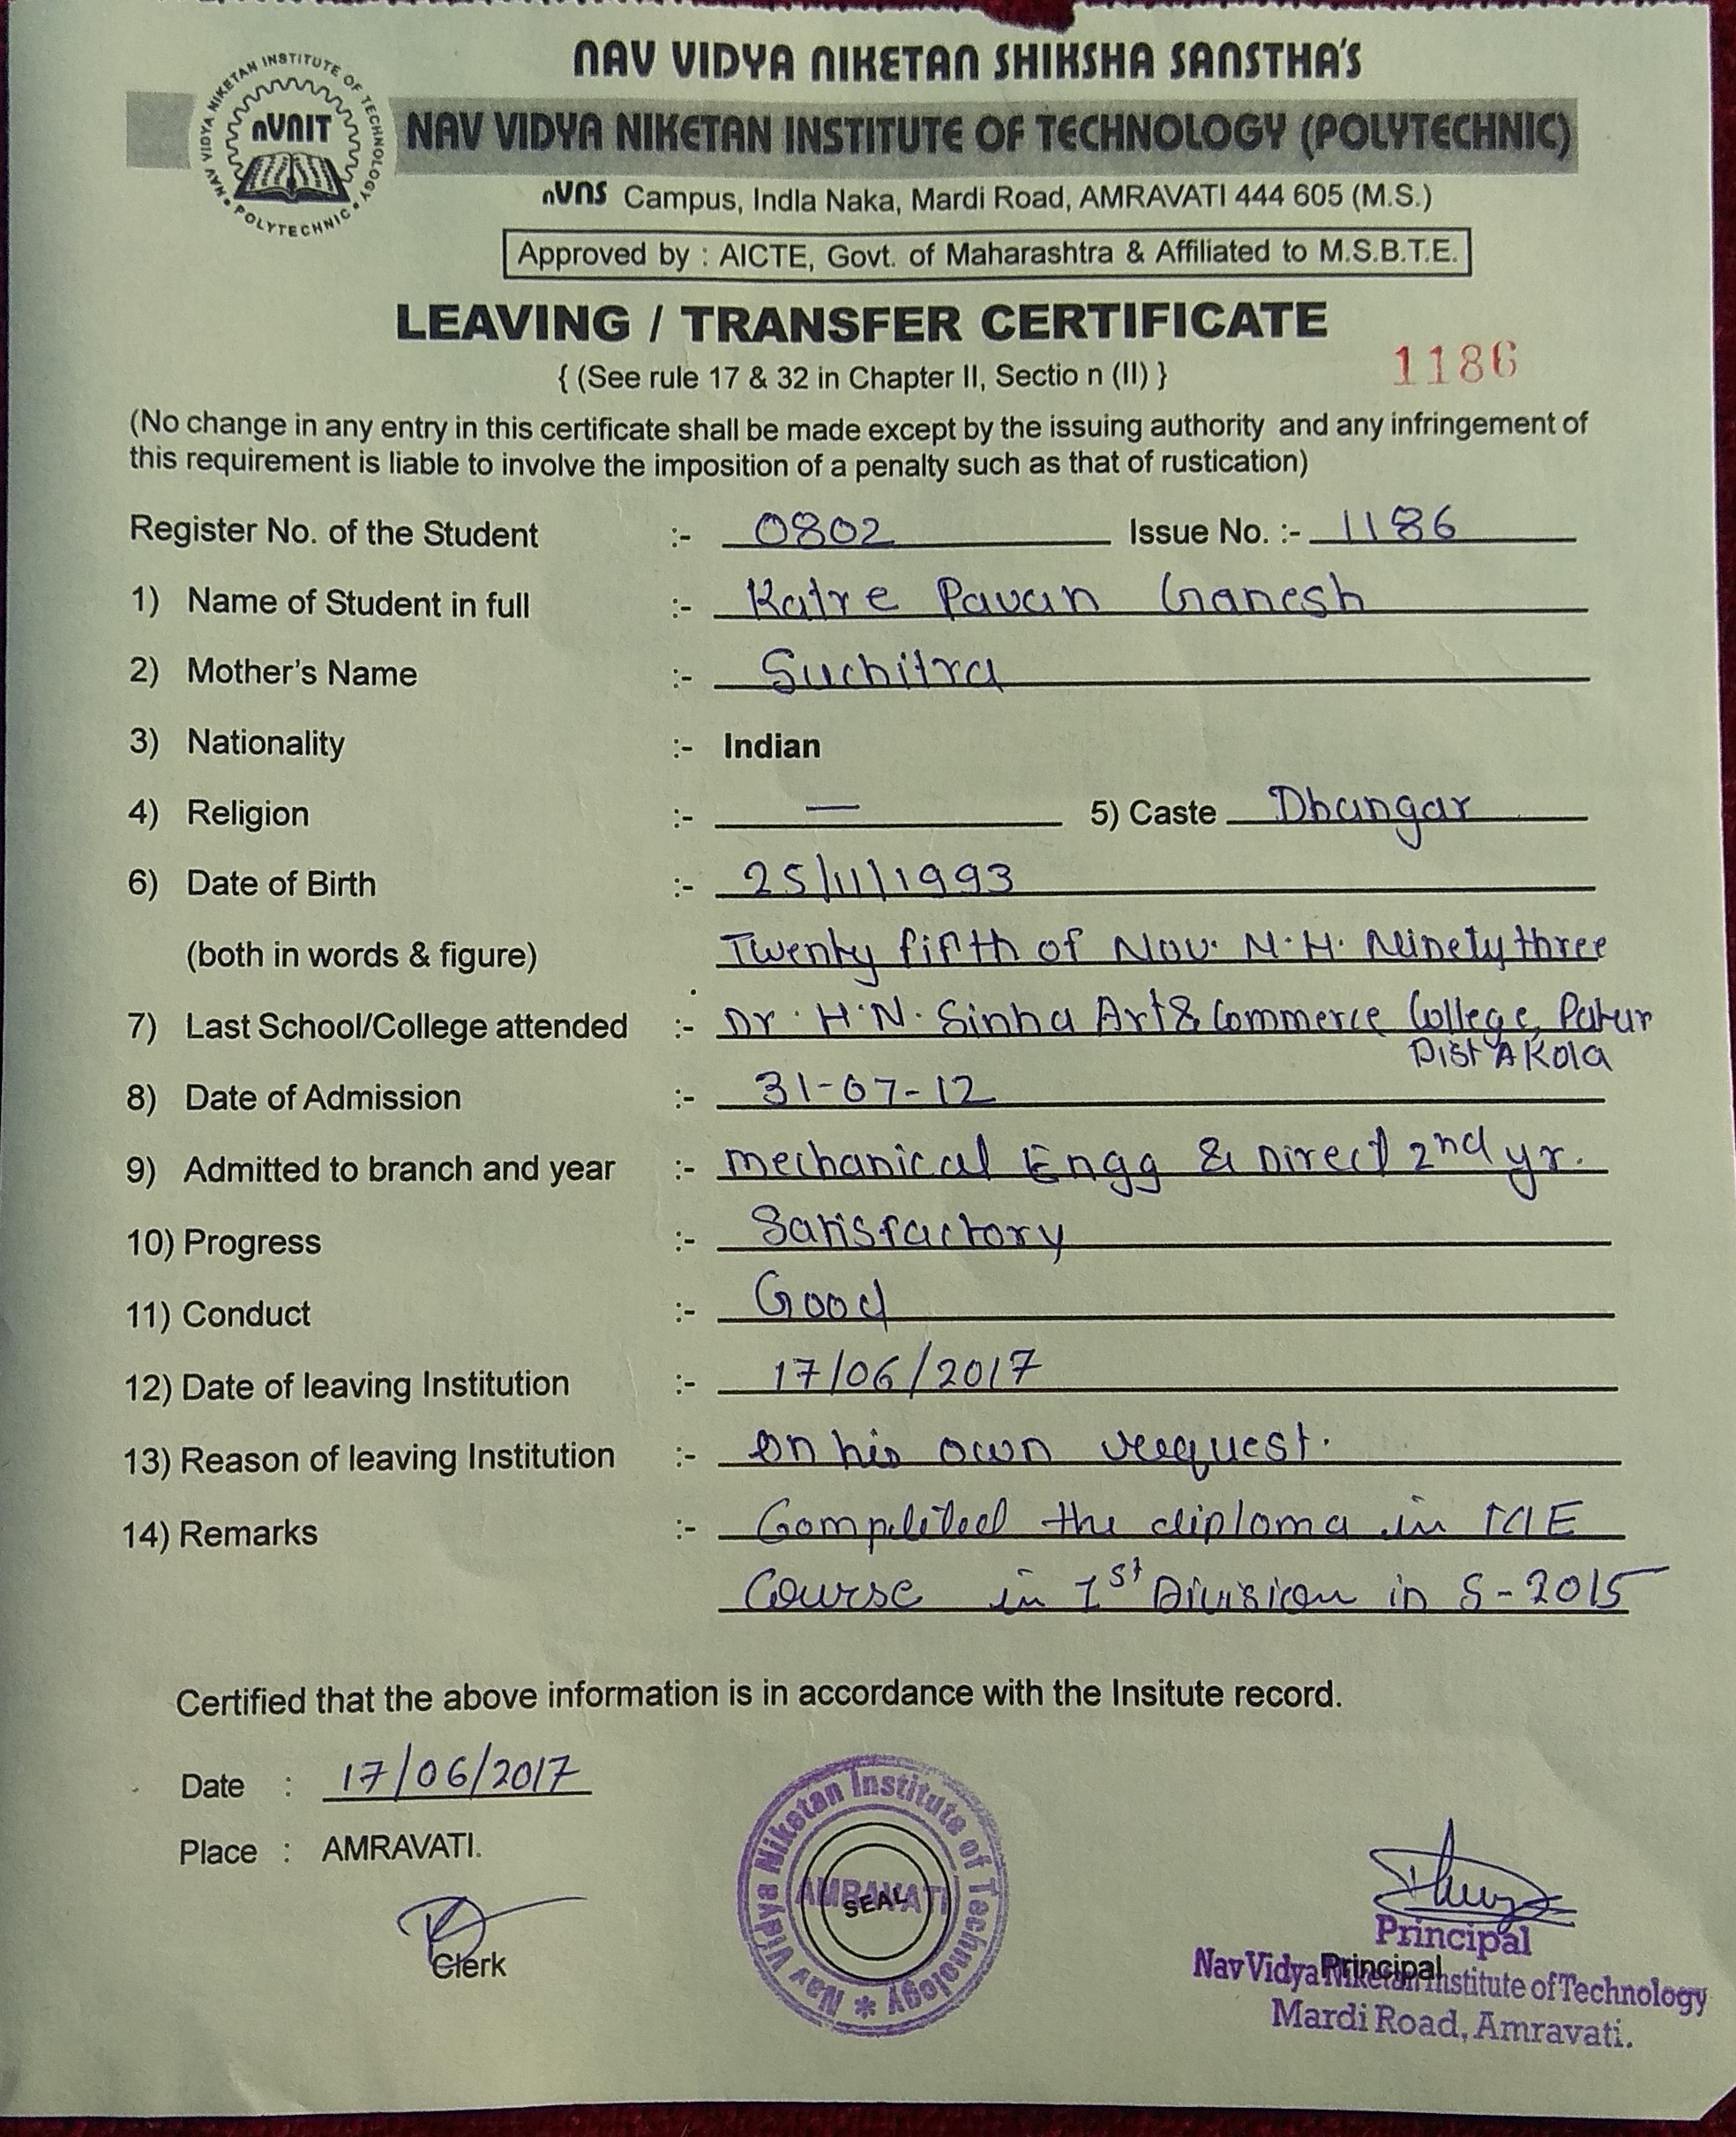 NAV VIDYA NIKETAN SHIKSHA SANSTHA'S
NAV VIDYA NIKETAN INSTITUTE OF TECHNOLOGY (POLYTECHNIC)
NAV VIDYA NIKETAN INSTITUTE OF TECHNOLOGY
nVNIT
• POLYTECHNIC •
nVNS Campus, Indla Naka, Mardi Road, AMRAVATI 444 605 (M.S.)
Approved by : AICTE, Govt. of Maharashtra & Affiliated to M.S.B.T.E.
LEAVING / TRANSFER CERTIFICATE
1186
{ (See rule 17 & 32 in Chapter II, Sectio n (II) }
(No change in any entry in this certificate shall be made except by the issuing authority and any infringement of
this requirement is liable to involve the imposition of a penalty such as that of rustication)
Register No. of the Student :- 0802 Issue No. :- 1186
1) Name of Student in full :- Katre Pavan Ganesh
2) Mother's Name :- Suchitra
3) Nationality :- Indian
4) Religion :- — 5) Caste Dhangar
6) Date of Birth :- 25/11/1993
(both in words & figure) Twenty fifth of Nov. N.H. Ninety three
7) Last School/College attended :- Dr. H.N. Sinha Art & Commerce College, Patur
Dist Akola
8) Date of Admission :- 31-07-12
9) Admitted to branch and year :- Mechanical Engg & Direct 2nd yr.
10) Progress :- Satisfactory
11) Conduct :- Good
12) Date of leaving Institution :- 17/06/2017
13) Reason of leaving Institution :- on his own request.
14) Remarks :- Complited the diploma in ME
Course in 1st Division in S-2015
Certified that the above information is in accordance with the Insitute record.
Date : 17/06/2017
Place : AMRAVATI.
Clerk
Nav Vidya Niketan Institute of Technology *
AMRAVATI
SEAL
Principal
Principal
Nav Vidya Niketan Institute of Technology
Mardi Road, Amravati.